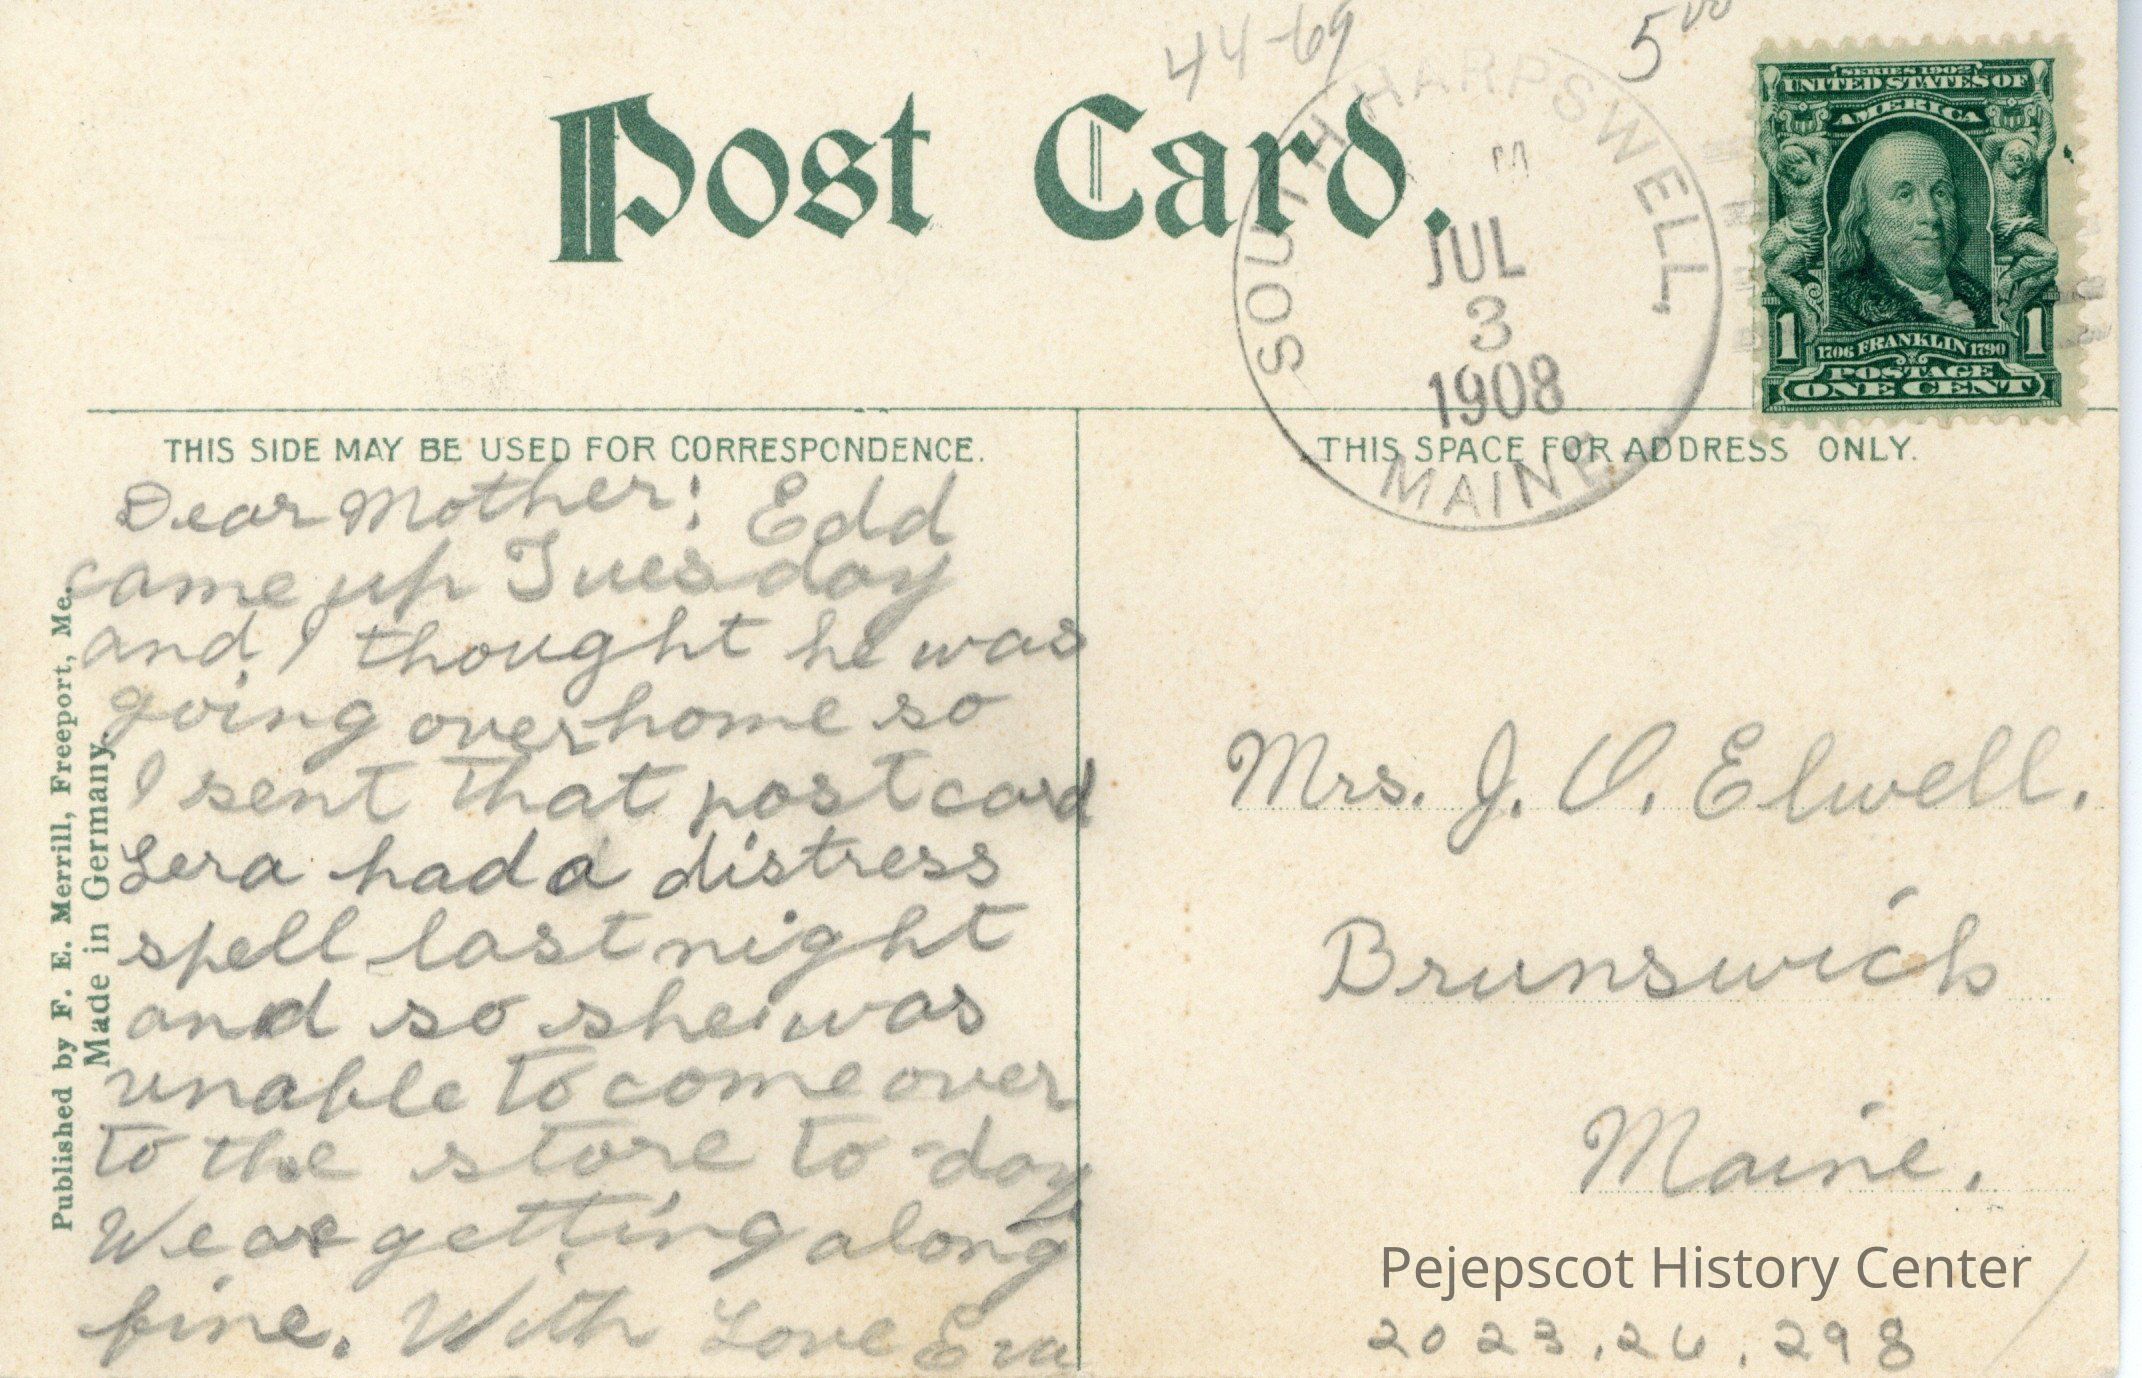 44-69
5 00
Post Card.
SOUTH HARPSWELL,
M
JUL
3
1908
MAINE
SERIES 1902
UNITED STATES OF
AMERICA
1 1706 FRANKLIN 1790 1
POSTAGE
ONE CENT
THIS SIDE MAY BE USED FOR CORRESPONDENCE.
Dear Mother: Edd
came up Tuesday
and I thought he was
going over home so
I sent that post card
Lera had a distress
spell last night
and so she was
unable to come over
to the store to-day
We are getting along
fine. With Love Eva
Published by F. E. Merrill, Freeport, Me.
Made in Germany.
THIS SPACE FOR ADDRESS ONLY.
Mrs. J. O. Elwell.
Brunswick
Maine.
Pejepscot History Center
2023.26.298